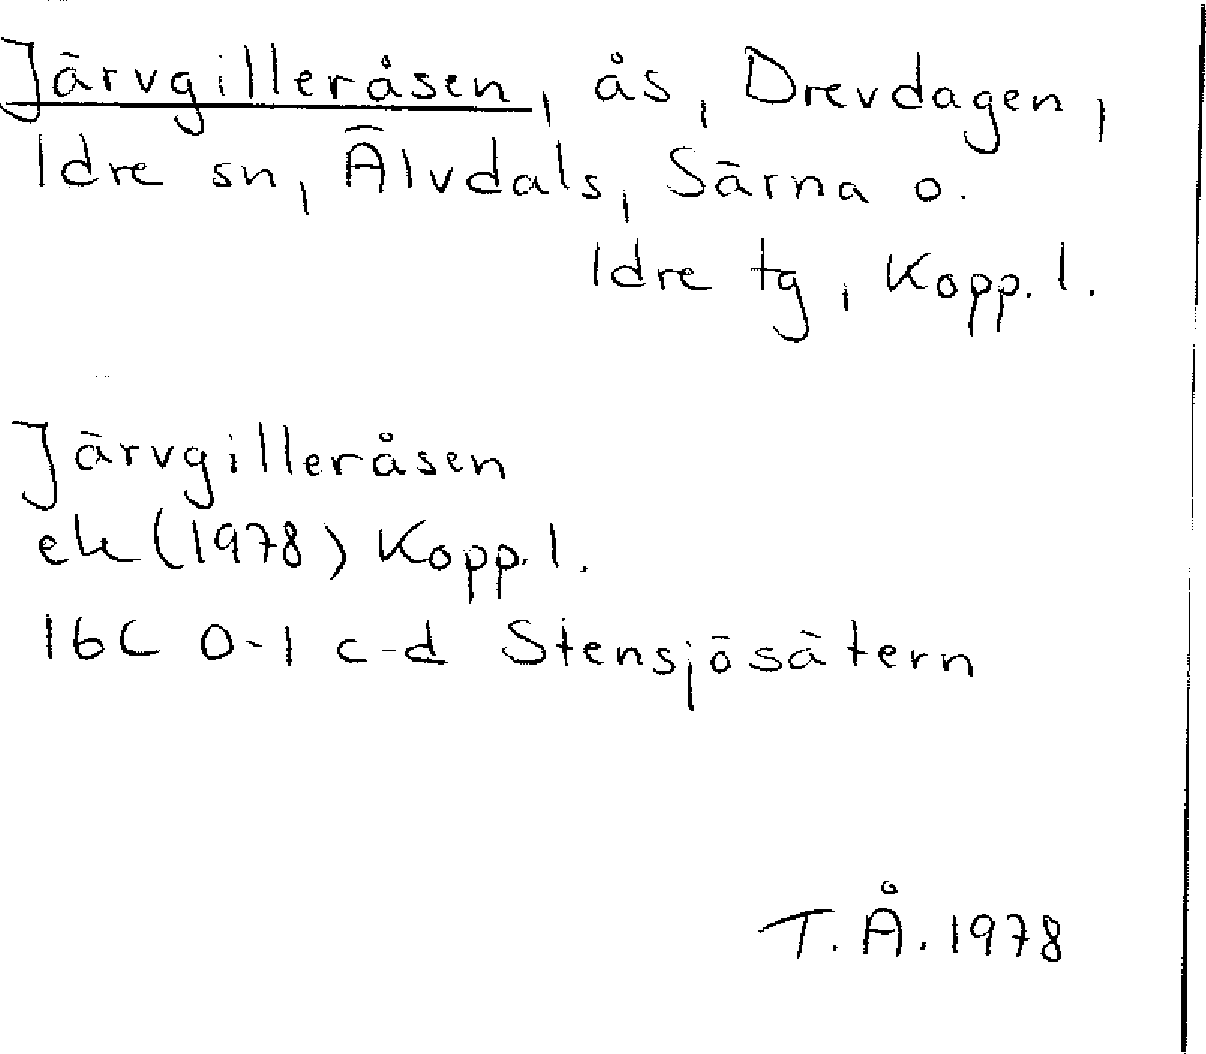 Järvgilleråsen, ås, Drevdagen,
Idre sn, Älvdals, Särna o.
Idre tg, Kopp. l.
Järvgilleråsen
ek (1978) Kopp. l.
16C 0-1 c-d Stensjösätern
T. Å. 1978